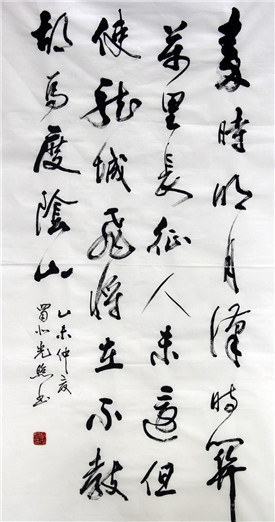 秦時明月漢时關
萬里長征人未還但
使龍城飛將在不教
胡馬度陰山
乙未仲夏
蜀北光书